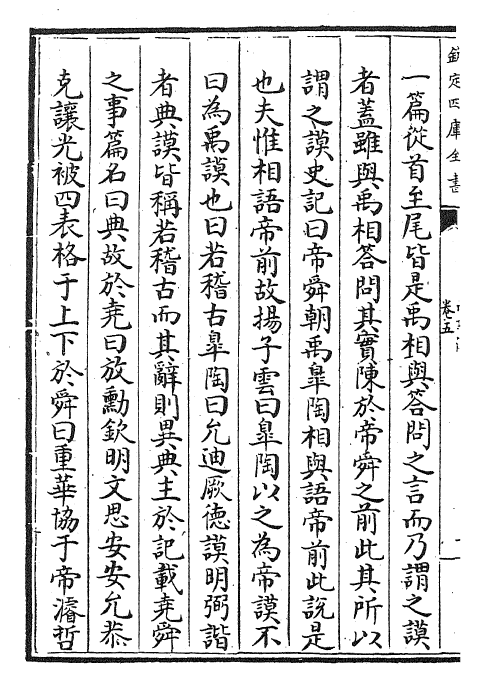 欽定四庫全書
卷五
一篇從首至尾皆是禹相與答問之言而乃謂之謨
者蓋雖與禹相答問其實陳於帝舜之前此其所以
謂之謨史記曰帝舜朝禹臯陶相與語帝前此說是
也夫惟相語帝前故揚子雲曰臯陶以之為帝謨不
曰為禹謨也曰若稽古臯陶曰允迪厥德謨明弼諧
者典謨皆稱若稽古而其辭則異典主於記載堯舜
之事篇名曰典故於堯曰放勳欽明文思安安允恭
克讓光被四表格于上下於舜曰重華協于帝濬哲